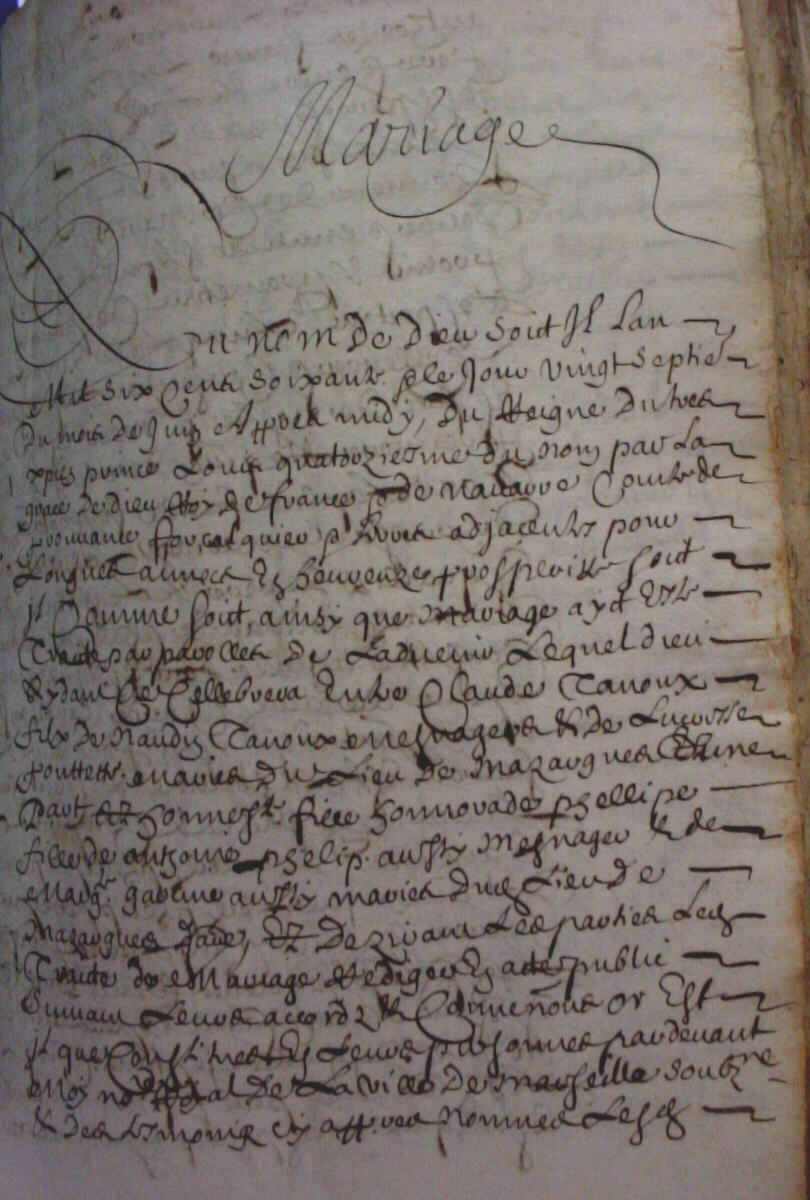 Mariage
Au nom de Dieu soict Il Lan
Mil six Cens soixante & le Jour vingt septie
Du mois De Juin Appres midy, Du Reigne Du tres
xpien prince Louis quatorziesme du nom par La
grace de Dieu Roy de france & de Navarre Comte de
prouvance forcalquier & terres adjacentes pour
Longues annees & heureuze prosperitte soit
Comme soit, ainsy que Mariage ayt Este
Traite par parolles de Ladvenir Lequel dieu
Aydant Se Cellebrera Entre Claude Tavoux
filz De Naudin Tavoux mesnager & de
maries du Lieu de Mazargues dune
Part & honneste fille honnorade phellipe
fille de anthoine phelip aussy mesnager & de
Madne aussy maries dud Lieu de
Mazargues dautre, Et Dezirant Les parties Led
Traite de Mariage Rediger En acte public
Suivant Leurs accordz & Convenons or Est
Il que Constitues En Leurs personnes pardevant
Moy not Royal de La ville de Marseille soubzne
& des tesmoingz cy appres nommes Lesd